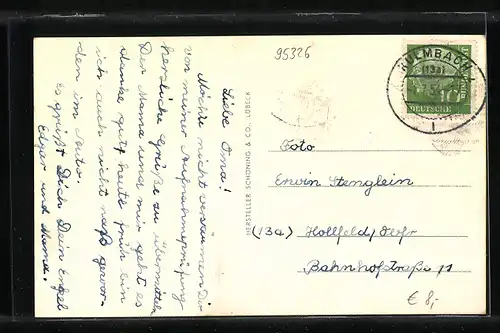 95326
Liebe Oma!
Möchte nicht versäumen Dir
von meiner Aufnahmeprüfung
herzliche Grüße zu übermitteln
Der Mama und mir geht es
danke gut, heute früh bin
ich auch nicht naß gewor-
den im Auto.
Es grüßt Dich Dein Enkel
Edgar und Mama!
HERSTELLER SCHÖNING & CO., LÜBECK
KULMBACH 1
(13a)
1
10
DEUTSCHE
Foto
Erwin Stenglein
(13a) Hollfeld/Ofr
Bahnhofstraße 11
€ 8,-